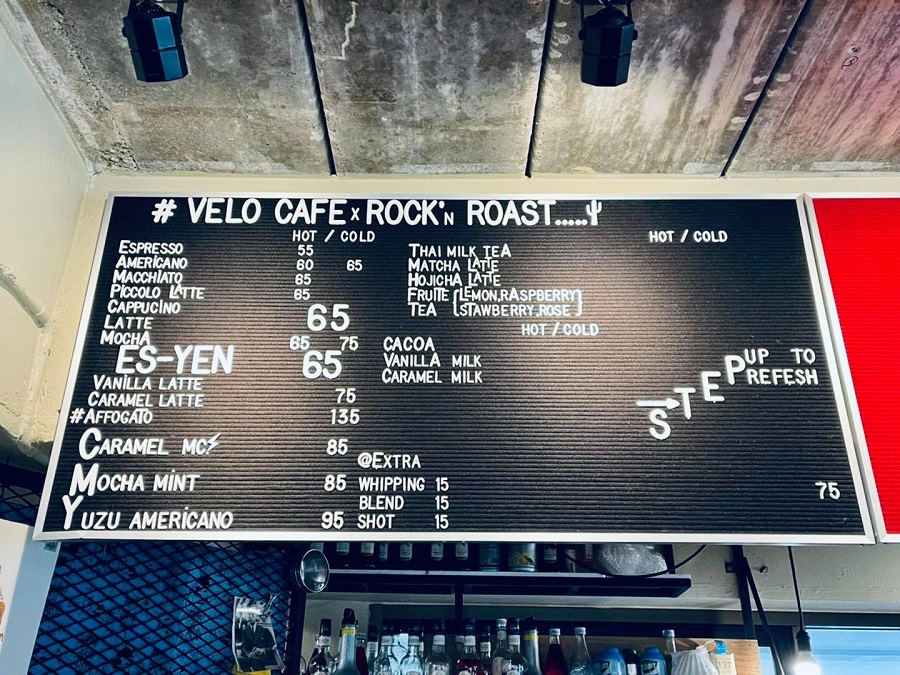 # VELO CAFE x ROCK'N ROAST.....
HOT / COLD
ESPRESSO 55
AMERICANO 60 65
MACCHIATO 65
PICCOLO LATTE 65
CAPPUCINO
LATTE 65
MOCHA 65 75
ES-YEN 65
VANILLA LATTE
CARAMEL LATTE 75
#AFFOGATO 135
CARAMEL MC 85
MOCHA MINT 85
YUZU AMERICANO 95
HOT / COLD
THAI MILK TEA
MATCHA LATTE
HOJICHA LATTE
FRUITE [LEMON,RASPBERRY]
TEA [STAWBERRY,ROSE]
HOT / COLD
CACOA
VANILLA MILK
CARAMEL MILK
@EXTRA
WHIPPING 15
BLEND 15
SHOT 15
STEP UP TO
REFESH
75